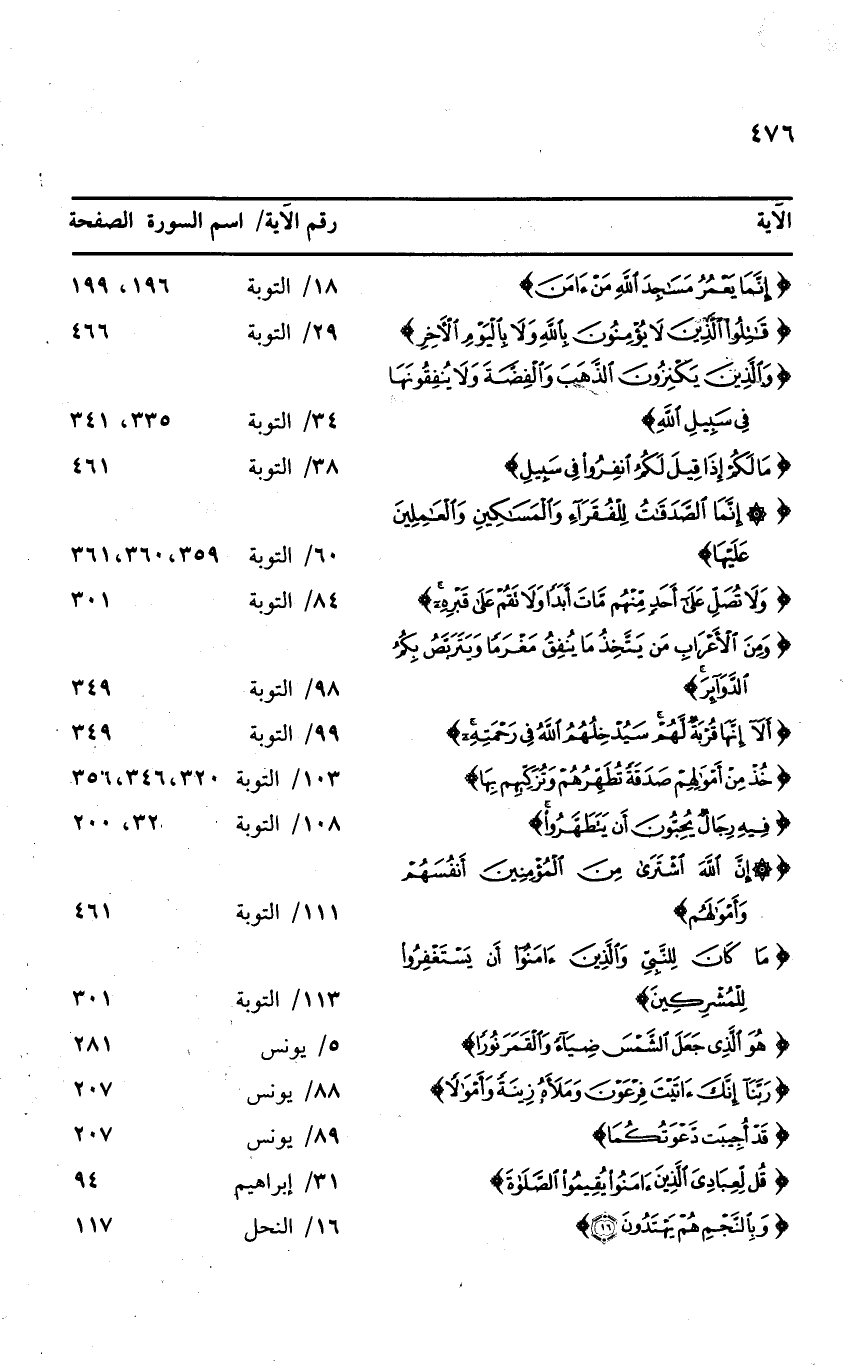 ٤٧٦
الآية رقم الآية/ اسم السورة الصفحة
﴿ إِنَّمَا يَعْمُرُ مَسَٰجِدَ ٱللَّهِ مَنْ ءَامَنَ﴾ ١٨/ التوبة ١٩٦، ١٩٩
﴿ قَٰتِلُوا۟ ٱلَّذِينَ لَا يُؤْمِنُونَ بِٱللَّهِ وَلَا بِٱلْيَوْمِ ٱلْءَاخِرِ﴾ ٢٩/ التوبة ٤٦٦
﴿ وَٱلَّذِينَ يَكْنِزُونَ ٱلذَّهَبَ وَٱلْفِضَّةَ وَلَا يُنفِقُونَهَا
فِى سَبِيلِ ٱللَّهِ﴾ ٣٤/ التوبة ٣٣٥، ٣٤١
﴿ مَا لَكُمْ إِذَا قِيلَ لَكُمُ ٱنفِرُوا۟ فِى سَبِيلِ﴾ ٣٨/ التوبة ٤٦١
﴿ ۞ إِنَّمَا ٱلصَّدَقَٰتُ لِلْفُقَرَآءِ وَٱلْمَسَٰكِينِ وَٱلْعَٰمِلِينَ
عَلَيْهَا﴾ ٦٠/ التوبة ٣٥٩، ٣٦٠، ٣٦١
﴿ وَلَا تُصَلِّ عَلَىٰٓ أَحَدٍ مِّنْهُم مَّاتَ أَبَدًا وَلَا تَقُمْ عَلَىٰ قَبْرِهِۦٓ﴾ ٨٤/ التوبة ٣٠١
﴿ وَمِنَ ٱلْأَعْرَابِ مَن يَتَّخِذُ مَا يُنفِقُ مَغْرَمًا وَيَتَرَبَّصُ بِكُمُ
ٱلدَّوَآئِرَ﴾ ٩٨/ التوبة ٣٤٩
﴿ أَلَآ إِنَّهَا قُرْبَةٌ لَّهُمْ سَيُدْخِلُهُمُ ٱللَّهُ فِى رَحْمَتِهِۦٓ﴾ ٩٩/ التوبة ٣٤٩
﴿ خُذْ مِنْ أَمْوَٰلِهِمْ صَدَقَةً تُطَهِّرُهُمْ وَتُزَكِّيهِم بِهَا﴾ ١٠٣/ التوبة ٣٢٠، ٣٤٦، ٣٥٦
﴿ فِيهِ رِجَالٌ يُحِبُّونَ أَن يَتَطَهَّرُوا۟﴾ ١٠٨/ التوبة ٣٢، ٢٠٠
﴿ ۞ إِنَّ ٱللَّهَ ٱشْتَرَىٰ مِنَ ٱلْمُؤْمِنِينَ أَنفُسَهُمْ
وَأَمْوَٰلَهُم﴾ ١١١/ التوبة ٤٦١
﴿ مَا كَانَ لِلنَّبِىِّ وَٱلَّذِينَ ءَامَنُوٓا۟ أَن يَسْتَغْفِرُوا۟
لِلْمُشْرِكِينَ﴾ ١١٣/ التوبة ٣٠١
﴿ هُوَ ٱلَّذِى جَعَلَ ٱلشَّمْسَ ضِيَآءً وَٱلْقَمَرَ نُورًا﴾ ٥/ يونس ٢٨١
﴿ رَبَّنَآ إِنَّكَ ءَاتَيْتَ فِرْعَوْنَ وَمَلَأَهُۥ زِينَةً وَأَمْوَٰلًا﴾ ٨٨/ يونس ٢٠٧
﴿ قَدْ أُجِيبَت دَّعْوَتُكُمَا﴾ ٨٩/ يونس ٢٠٧
﴿ قُل لِّعِبَادِىَ ٱلَّذِينَ ءَامَنُوا۟ يُقِيمُوا۟ ٱلصَّلَوٰةَ﴾ ٣١/ إبراهيم ٩٤
﴿ وَبِٱلنَّجْمِ هُمْ يَهْتَدُونَ ١٦﴾ ١٦/ النحل ١١٧